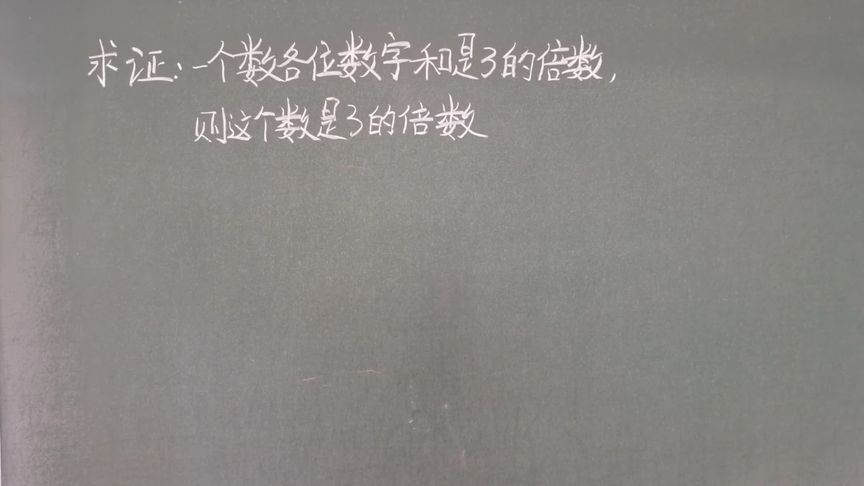 求证:一个数各位数字和是3的倍数,
则这个数是3的倍数